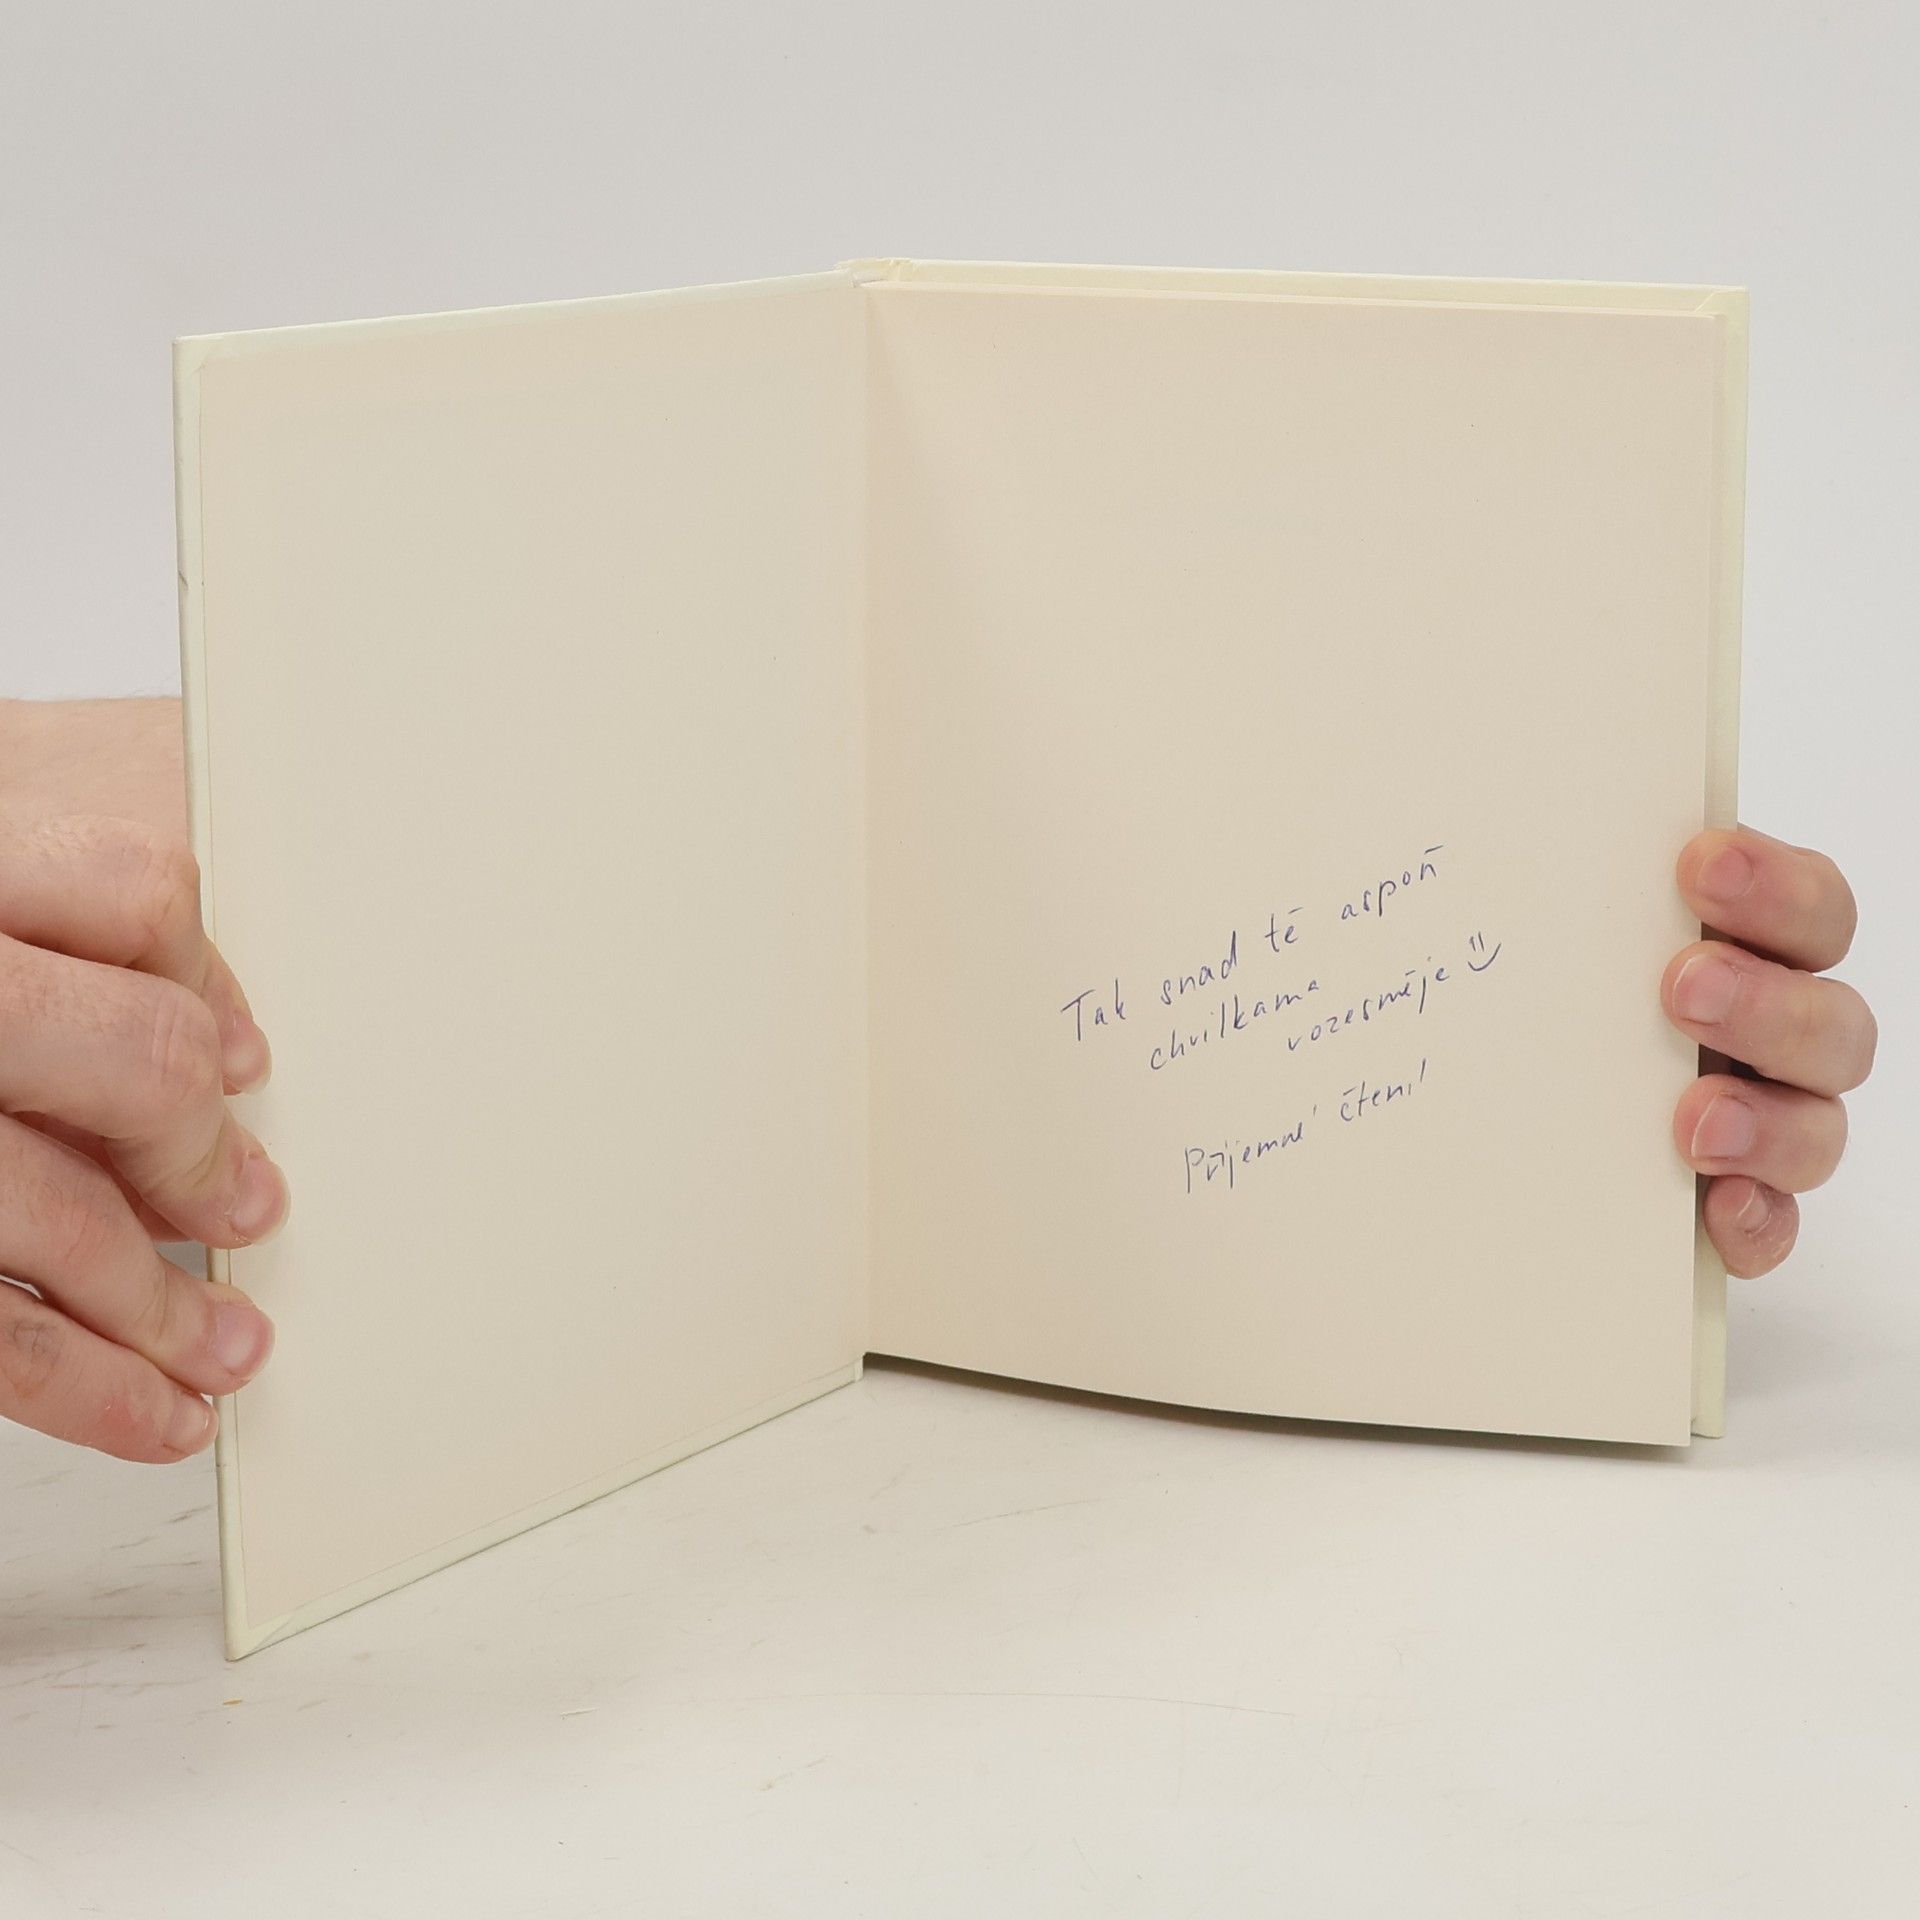 Tak snad tě aspoň
chvilkama
vozesměje
Příjemné čtení